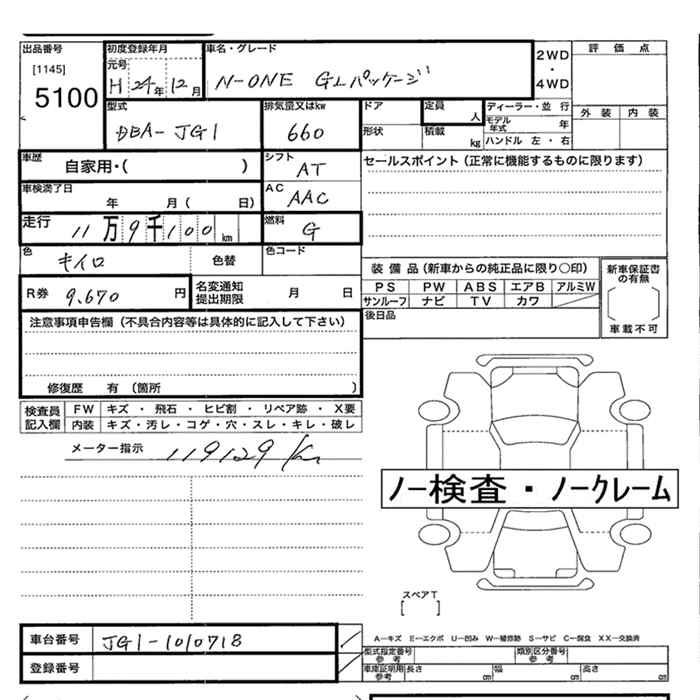 出品番号 初度登録年月 車名・グレード 2WD ・ 4WD 評価点
[1145] 5100 元号 H 24年 12月 N-ONE GLパッケージ
型式 排気量又はkw ドア 定員 人 ディーラー・並行 外装 内装
DBA-JG1 660 形状 積載 kg モデル年式 年
ハンドル 左・右
車歴 自家用・( ) シフト AT セールスポイント(正常に機能するものに限ります)
車検満了日 年 月( 日) AC AAC
走行 11万9千100km 燃料 G
色 キイロ 色替 色コード
装備品(新車からの純正品に限り〇印) 新車保証書の有無
R券 9,670円 名変通知提出期限 月 日 PS PW ABS エアB アルミW
サンルーフ ナビ TV カワ [ ]
注意事項申告欄(不具合内容等は具体的に記入して下さい) 後日品 車載不可
修復歴 有(箇所 )
検査員記入欄 FW キズ・飛石・ヒビ割・リペア跡・X要
内装 キズ・汚レ・コゲ・穴・スレ・キレ・破レ
メーター指示 119129 km
ノー検査・ノークレーム
スペアT
[ ]
車台番号 JG1-1010718 A-キズ E-エクボ U-凹み W-補修跡 S-サビ C-腐食 XX-交換済
型式指定番号 参考 類別区分番号 参考
登録番号 車庫証明用 参考 長さ cm 幅 cm 高さ cm